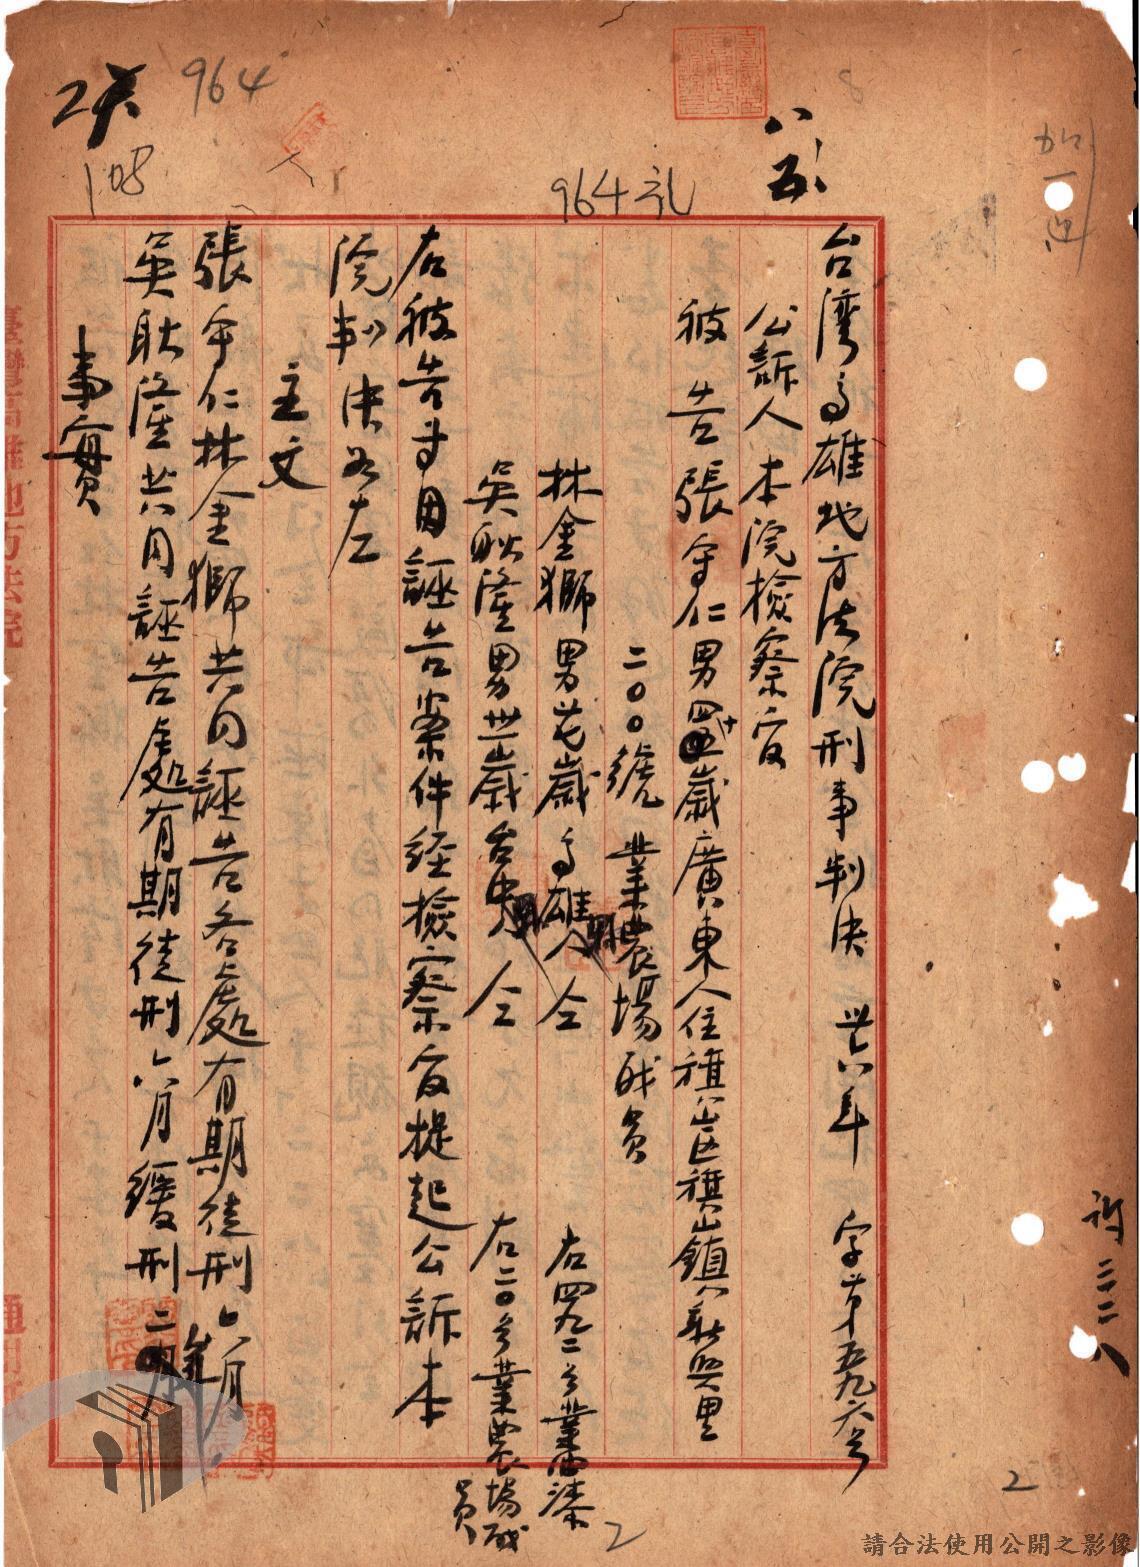 964
108
964
八
五
台灣高雄地方法院刑事判決 卅六年 字第五九六号
公訴人 本院檢察官
被 告 張守仁 男 歲 廣東人 住旗山區旗山鎮 里
二〇〇號 業農場職員
林金獅 男 歲 高雄 仝 右四九二号 業油漆
吳耿隆 男 卅 歲 台 仝 右二〇号 業農場職員
右被告等因誣告案件經檢察官提起公訴本
院判決如左
主文
張守仁林金獅共同誣告各處有期徒刑六月
吳耿隆共同誣告處有期徒刑六月緩刑二年
事實
2
2
請合法使用公開之影像